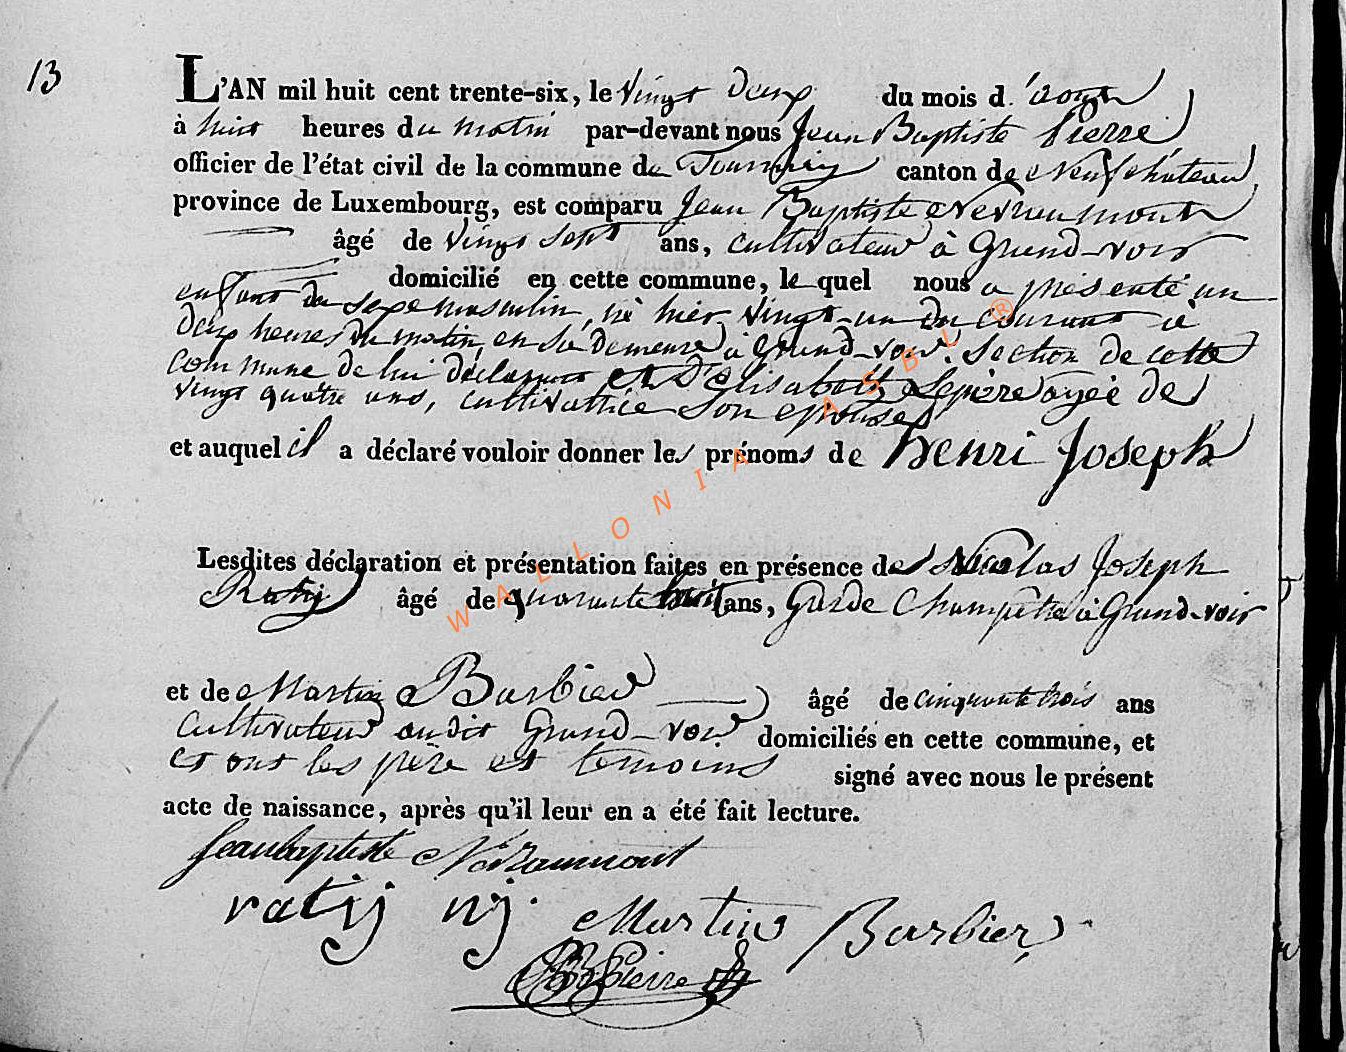 13
L'AN mil huit cent trente-six, le vingt deux du mois d'août
à huit heures du matin par-devant nous Jean Baptiste Pierre
officier de l'état civil de la commune de Tournay canton de Neufchâteau
province de Luxembourg, est comparu Jean Baptiste
âgé de vingt sept ans, cultivateur à Grand-voir
domicilié en cette commune, le quel nous a présenté un
enfant du sexe masculin, né hier vingt-un du courant à
deux heures du matin en sa demeure à Grand-voir section de cette
commune de lui déclarant et d'Elisabeth Lepierre agée de
vingt quatre ans, cultivatrice son epouse
et auquel il a déclaré vouloir donner les prénoms de henri Joseph
Lesdites déclaration et présentation faites en présence de Nicolas Joseph
Ratij âgé de quarante huit ans, Garde Champêtre à Grand-voir
et de Martin Barbier âgé de cinquante trois ans
cultivateur audit Grand-voir domiciliés en cette commune, et
et ont les père et temoins signé avec nous le présent
acte de naissance, après qu'il leur en a été fait lecture.
Jeanbaptiste
ratij nj.
Martin Barbier
JB Pierre
WALLONIA ASBL ®